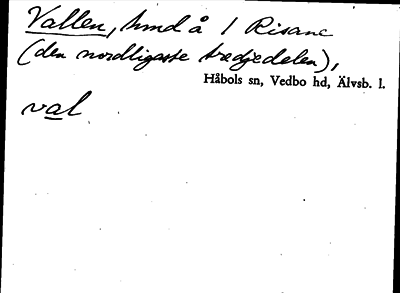 Vallen, hmd å 1 Risane
(den nordligaste tredjedelen),
Håbols sn, Vedbo hd, Älvsb. l.
val